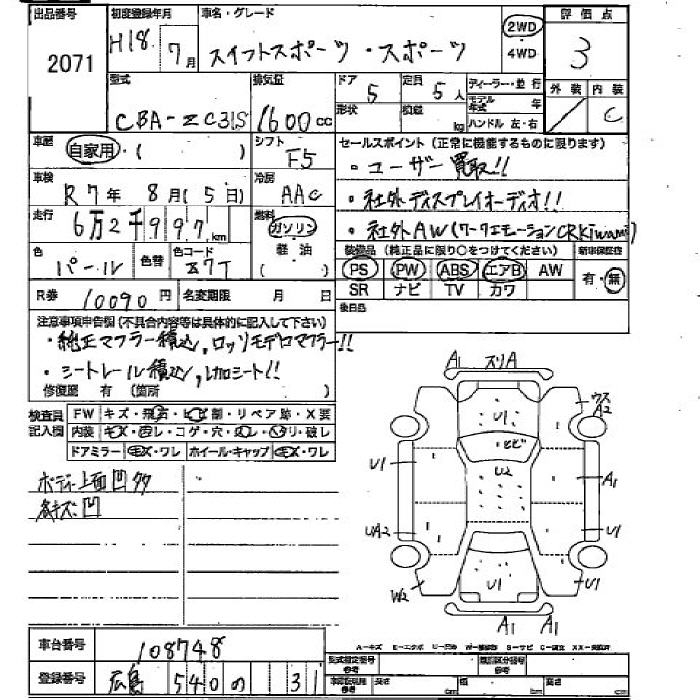 出品番号 初度登録年月 車名・グレード 評価点
2071 H18. 7月 スイフトスポーツ・スポーツ 2WD ・ 4WD 3
型式 排気量 ドア 定員 ディーラー・並行 外装 内装
CBA-ZC31S 1600cc 5 5人 形状 積載 kg モデル年式 年 ハンドル 左・右 C
車歴 自家用・( ) シフト F5 セールスポイント (正常に機能するものに限ります)
・ユーザー買取!!
車検 R7年 8月(5日) 冷房 AAC
・社外ディスプレイオーディオ!!
走行 6万2千997km 燃料 ガソリン 軽油 ( )
・社外AW(ワークエモーションCRKiwami)
色 パール 色替 色コード Z7T
装備品 (純正品に限り○をつけてください) 新車保証書
PS PW ABS エアB AW 有・無
SR ナビ TV カワ
R券 10090円 名変期限 月 日
後日品
注意事項申告欄(不具合内容等は具体的に記入して下さい)
・純正マフラー積込, ロッソモデロマフラー!!
・シートレール積込, レカロシート!!
修復歴 有 (箇所 )
検査員記入欄 FW キズ・飛石・ヒビ・削・リペア跡・X要
内装 キズ・汚レ・コゲ・穴・スレ・ハリ・破レ
ドアミラー キズ・ワレ ホイール・キャップ キズ・ワレ
ボディ上面凹多
多キズ・凹
A1 スリA
ウス A2
U1
ヒビ
U1 U2 A1
UA2 U1
W2 U1 U1
A1 A1
A=キズ E=エクボ U=凹み W=補修跡 S=サビ C=腐食 XX=交換済
車台番号 108748
型式指定番号 参考 類別区分番号 参考
登録番号 広島 540 の 31
車庫証明用 参考 長さ cm 幅 cm 高さ cm